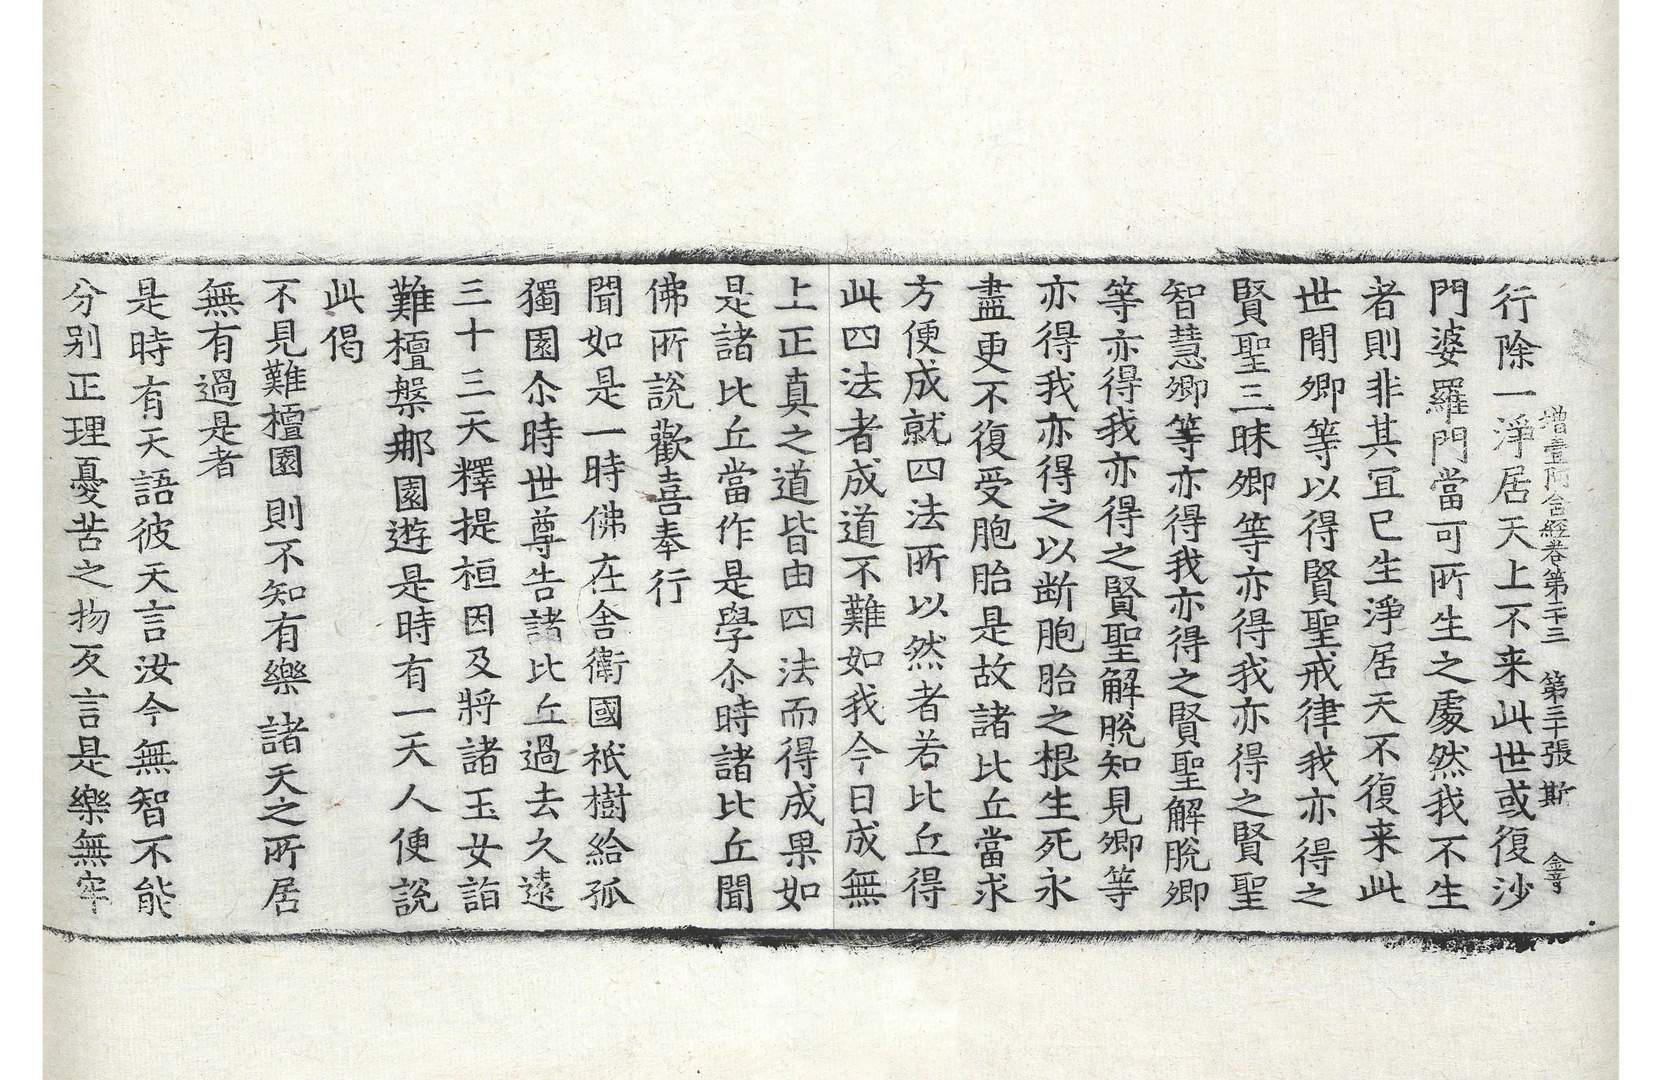 增壹阿含經卷第二十三 第三十張 斯
行除一淨居天上不来此世或復沙
門婆羅門當可所生之處然我不生
者則非其冝巳生淨居天不復来此
世閒卿等以得賢聖戒律我亦得之
賢聖三昧卿等亦得我亦得之賢聖
智慧卿等亦得我亦得之賢聖解脫卿
等亦得我亦得之賢聖解脫知見卿等
亦得我亦得之以断胞胎之根生死永
盡更不復受胞胎是故諸比丘當求
方便成就四法所以然者若比丘得
此四法者成道不難如我今日成無
上正真之道皆由四法而得成果如
是諸比丘當作是學尒時諸比丘聞
佛所說歡喜奉行
聞如是一時佛在舍衛國祇樹給孤
獨園尒時世尊告諸比丘過去久遠
三十三天釋提桓因及將諸玉女詣
難檀槃那園遊是時有一天人便說
此偈
不見難檀園 則不知有樂 諸天之所居
無有過是者
是時有天語彼天言汝今無智不能
分別正理憂苦之物反言是樂無牢